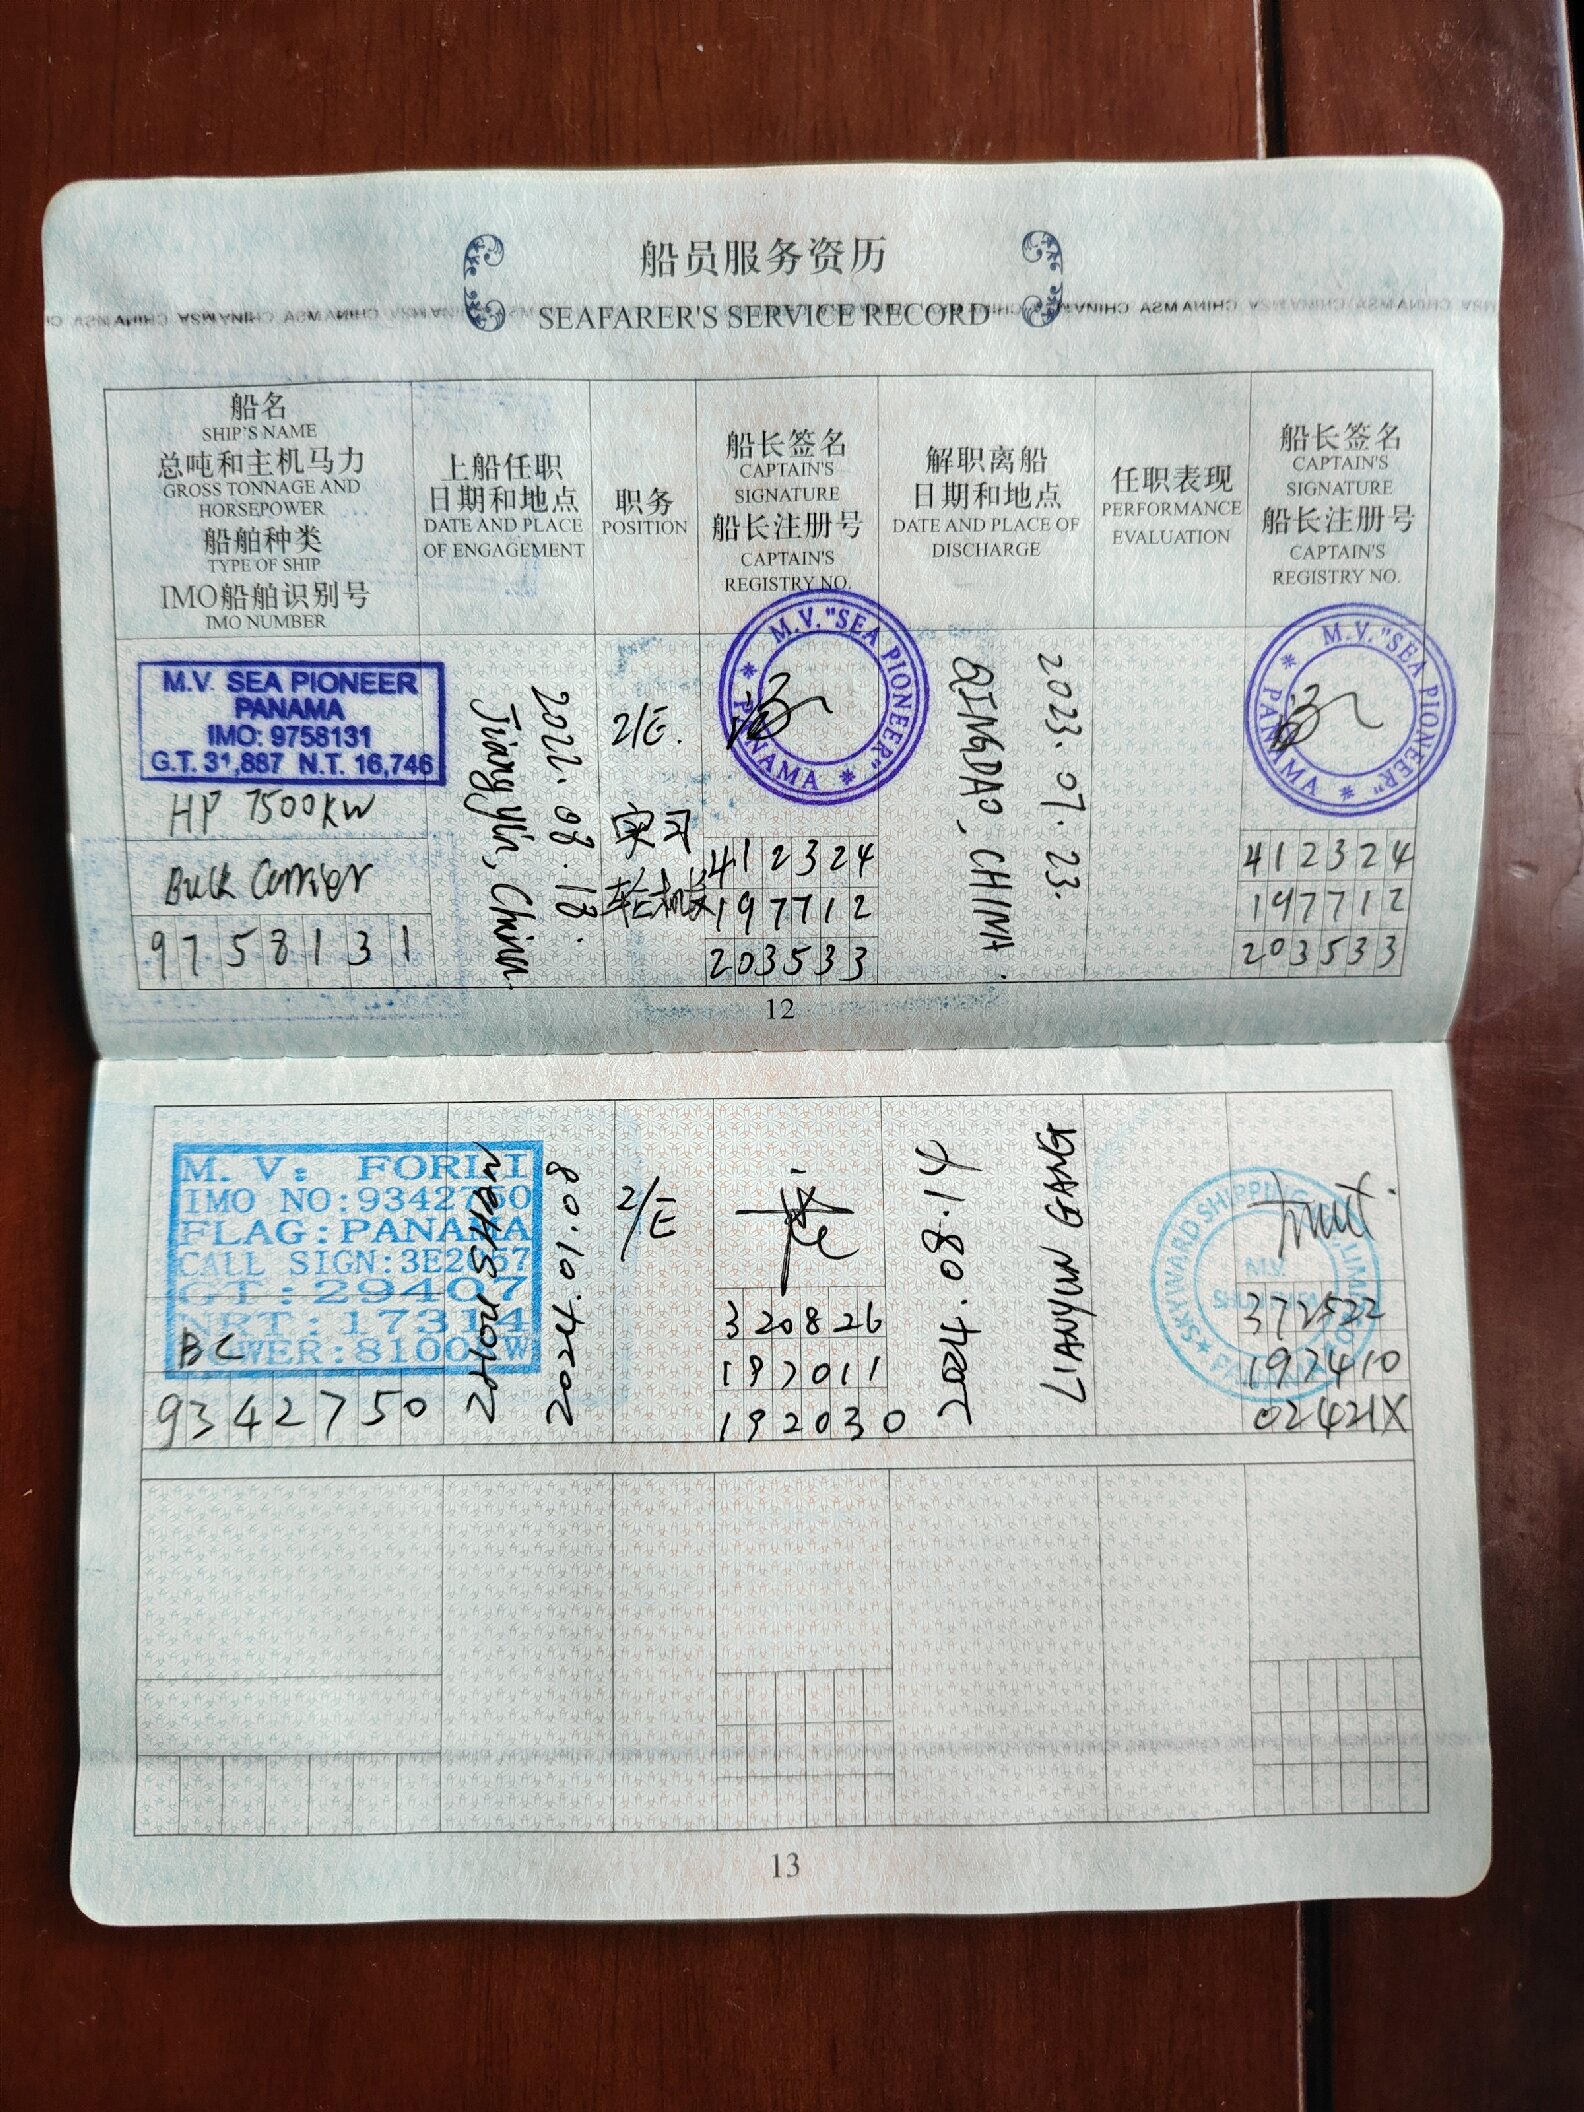 船员服务资历
SEAFARER'S SERVICE RECORD
船名
SHIP'S NAME
总吨和主机马力
GROSS TONNAGE AND
HORSEPOWER
船舶种类
TYPE OF SHIP
IMO船舶识别号
IMO NUMBER
上船任职
日期和地点
DATE AND PLACE
OF ENGAGEMENT
职务
POSITION
船长签名
CAPTAIN'S
SIGNATURE
船长注册号
CAPTAIN'S
REGISTRY NO.
解职离船
日期和地点
DATE AND PLACE OF
DISCHARGE
任职表现
PERFORMANCE
EVALUATION
船长签名
CAPTAIN'S
SIGNATURE
船长注册号
CAPTAIN'S
REGISTRY NO.
M.V. SEA PIONEER
PANAMA
IMO: 9758131
G.T. 31,887 N.T. 16,746
HP 7500KW
Bulk Carrier
9758131
2022.08.18.
Jiang Yin, China
2/E.
实习
轮机长
M.V. "SEA PIONEER"
PANAMA
412324
197712
203533
2023.07.23.
QINGDAO, CHINA.
M.V. "SEA PIONEER"
PANAMA
412324
197712
203533
12
M. V: 
IMO NO:9342750
FLAG:PANAMA
CALL SIGN:
GT:29407
NRT:17314
POWER:8100KW
BC
9342750
ZHOUSHAN
2024.01.08
2/E
320826
197011
192030
2024.08.14
LIANYUN GANG
SKYWARD SHIPPING LIMITED
M.V.
372522
197410
02421X
13